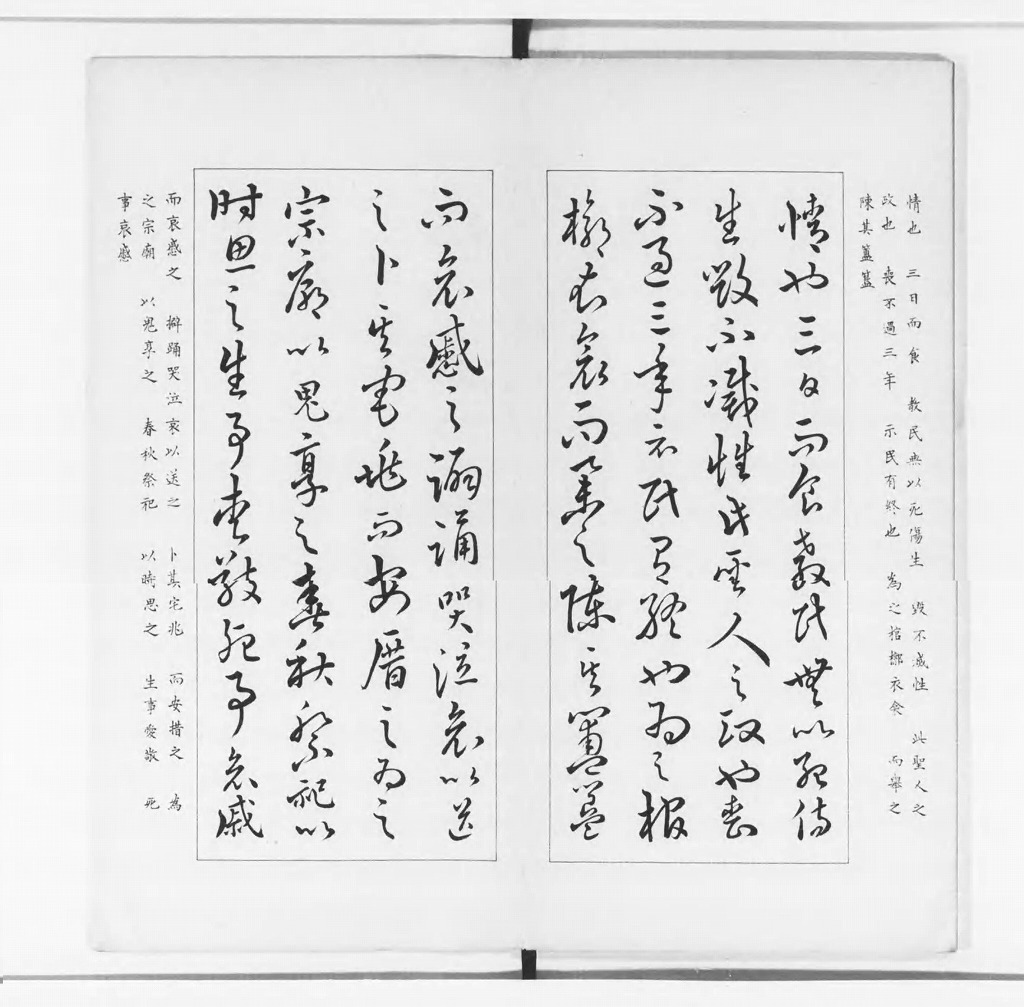 情也 三日而食 教民無以死傷生 毀不滅性 此聖人之
政也 喪不過三年 示民有終也 為之棺槨衣衾 而舉之
陳其簠簋
情也三日而食教民無以死傷
生毀不滅性此聖人之政也喪
不過三年示民有終也為之棺
槨衣衾而舉之陳其簠簋
而哀慼之擗踊哭泣哀以送
之卜其宅兆而安厝之為之
宗廟以鬼享之春秋祭祀以
時思之生事愛敬死事哀戚
而哀慼之 擗踊哭泣哀以送之 卜其宅兆 而安措之 為
之宗廟 以鬼享之 春秋祭祀 以時思之 生事愛敬 死
事哀慼